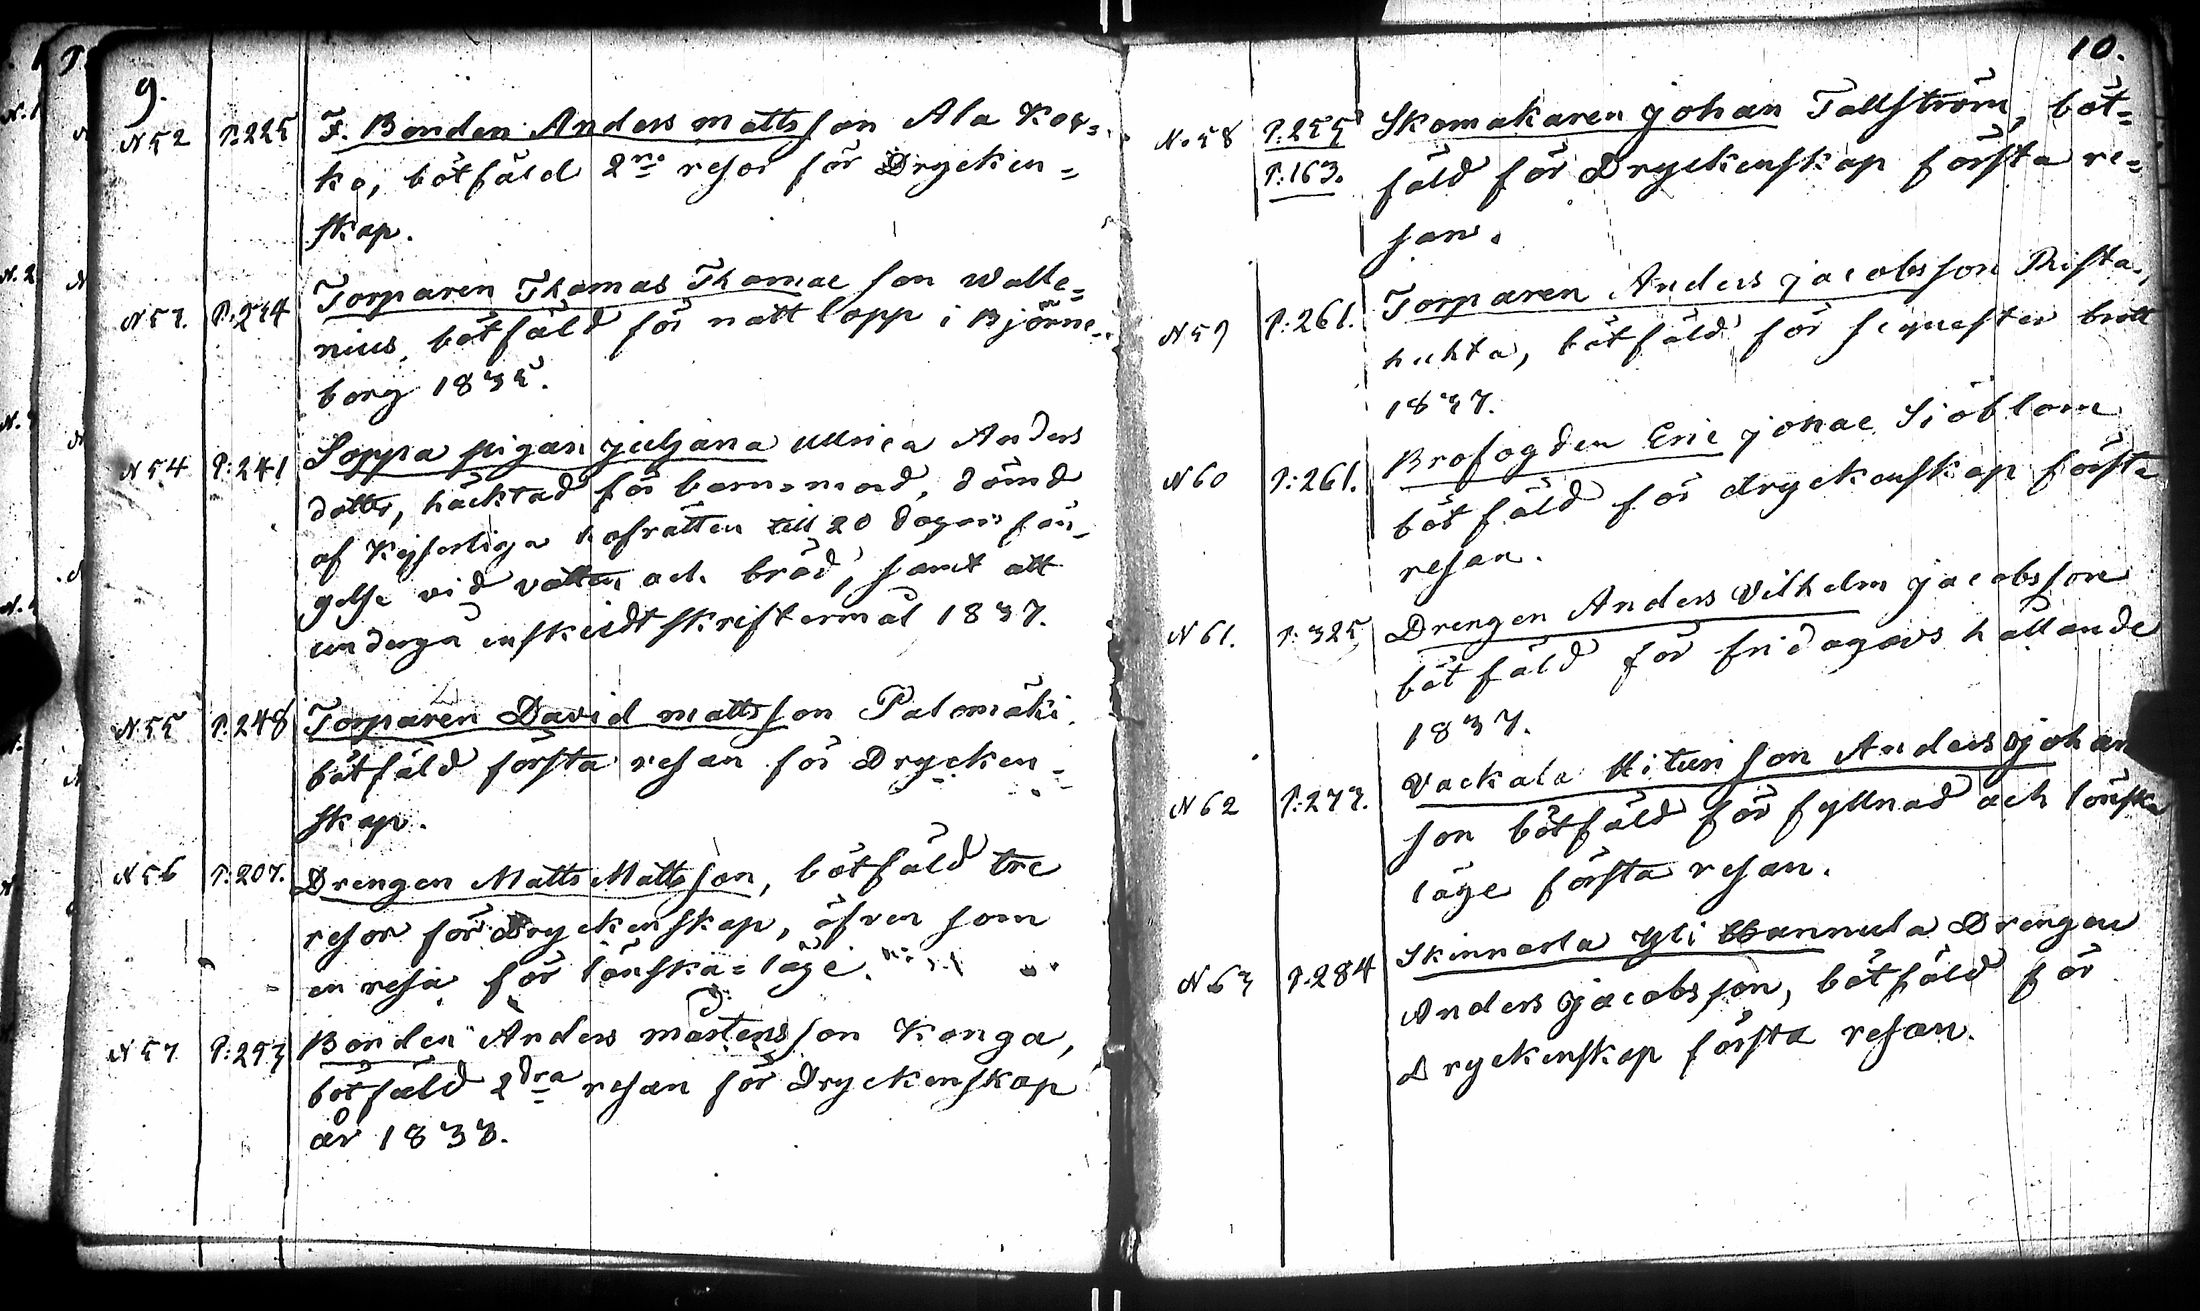 9.
N 52 P: 225 F. Bonden Anders matts son Ala Kos=
ko, bötfäld 2ne resor för Drycken=
skap.
N 53. P: 234 Torparen Thomas Thomae son Walle=
nius, bötfäld för nattlopp i Björne=
borg 1835.
N 54 P: 241 Soppa pigan juljana Ullrica Anders
dotter, häcktad för barn=mord, dömd
af Kejserliga hofrätten till 20 dagars fän=
gelse vid vatten och bröd, samt att
undergå enskildt skriftermål 1837.
N 55 P: 248 Torparen David matts son Palomäki.
bötfäld första resan för Drycken=
skap.
N 56 P: 207. Drengen Matts Matts son, bötfäld tre
resor för Dryckenskap, äfven som
en resa för lönska=läge.
N 57 P: 293 Bonden Anders mårtens son Konga,
bötfäld 2dra resan för Dryckenskap
år 1833.
10.
N. 58 P. 255 Skomakaren johan Tallström, böt=
P. 163. fäld för Dryckenskap första re=
san.
N 59 P: 261. Torparen Anders jacobs son Rista,
huhta, bötfäld för sequester brott
1837.
N 60 P: 261. Brofogden Eric johae Siöblom
bötfäld för dryckenskap första
resan.
N 61. P: 325 Drengen Anders Vilhelm jacobs son
bötfäld för fridagars hållande
1837.
N 62 P: 277. Vackala Uituri son Anders johan
son bötfäld för fyllnad och lönska
läge första resan.
N 63 P. 284 Skinnarla Yli Hannula Drengen
Anders jacobs son, bötfäld för
Dryckenskap första resan.